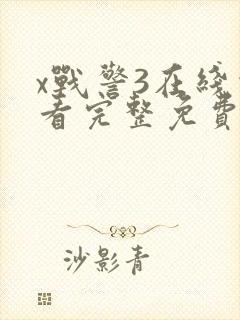 x戰警3在綫
看完整免費
沙影青